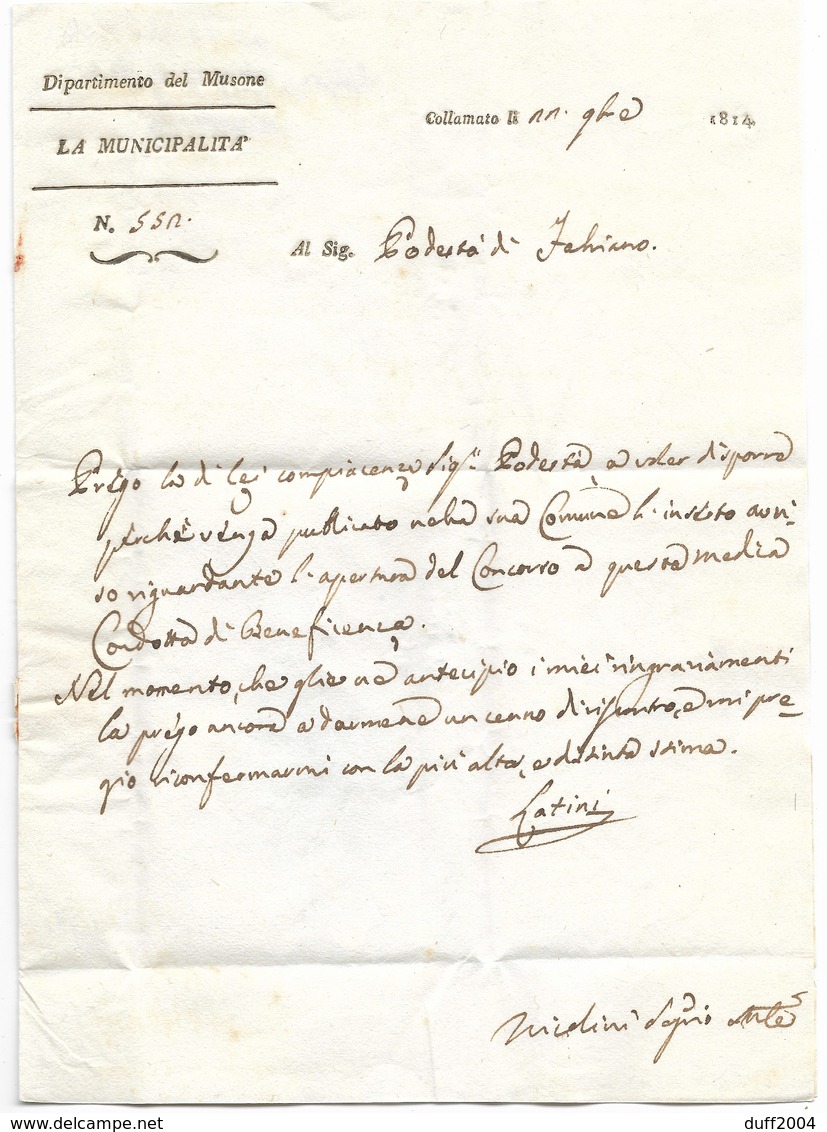 Dipartimento del Musone
LA MUNICIPALITA'
N. 552.
Collamato li 11. 9bre 1814.
Al Sig. Podestà di Fabriano.
Prego la di Lei compiacenza Sigr. Podestà a voler disporre
perché venga publicato nella sua Comune l'inserto avvi-
so riguardante l'apertura del Concorso a questa Medica
Condotta di Beneficenza.
Nel momento, che glie ne antecipio i miei ringraziamenti
la prego ancora a darmene un cenno di riscontro, e mi pre-
gio riconfermarmi con la più alta, e distinta stima.
Latini
Nicolini Segrio
delcampe.net
duff2004